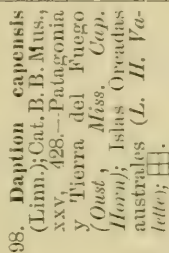 98. Daption capensis
(Linn.); Cat. B. B. Mus.,
xxv, 428.—Patagonia
y Tierra del Fuego
(Oust, Miss. Cap.
Horn); Islas Orcadas
australes (L. H. Va-
lette);